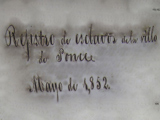 Registro de esclavos de la villa
de Ponce
Mayo de 1,852.